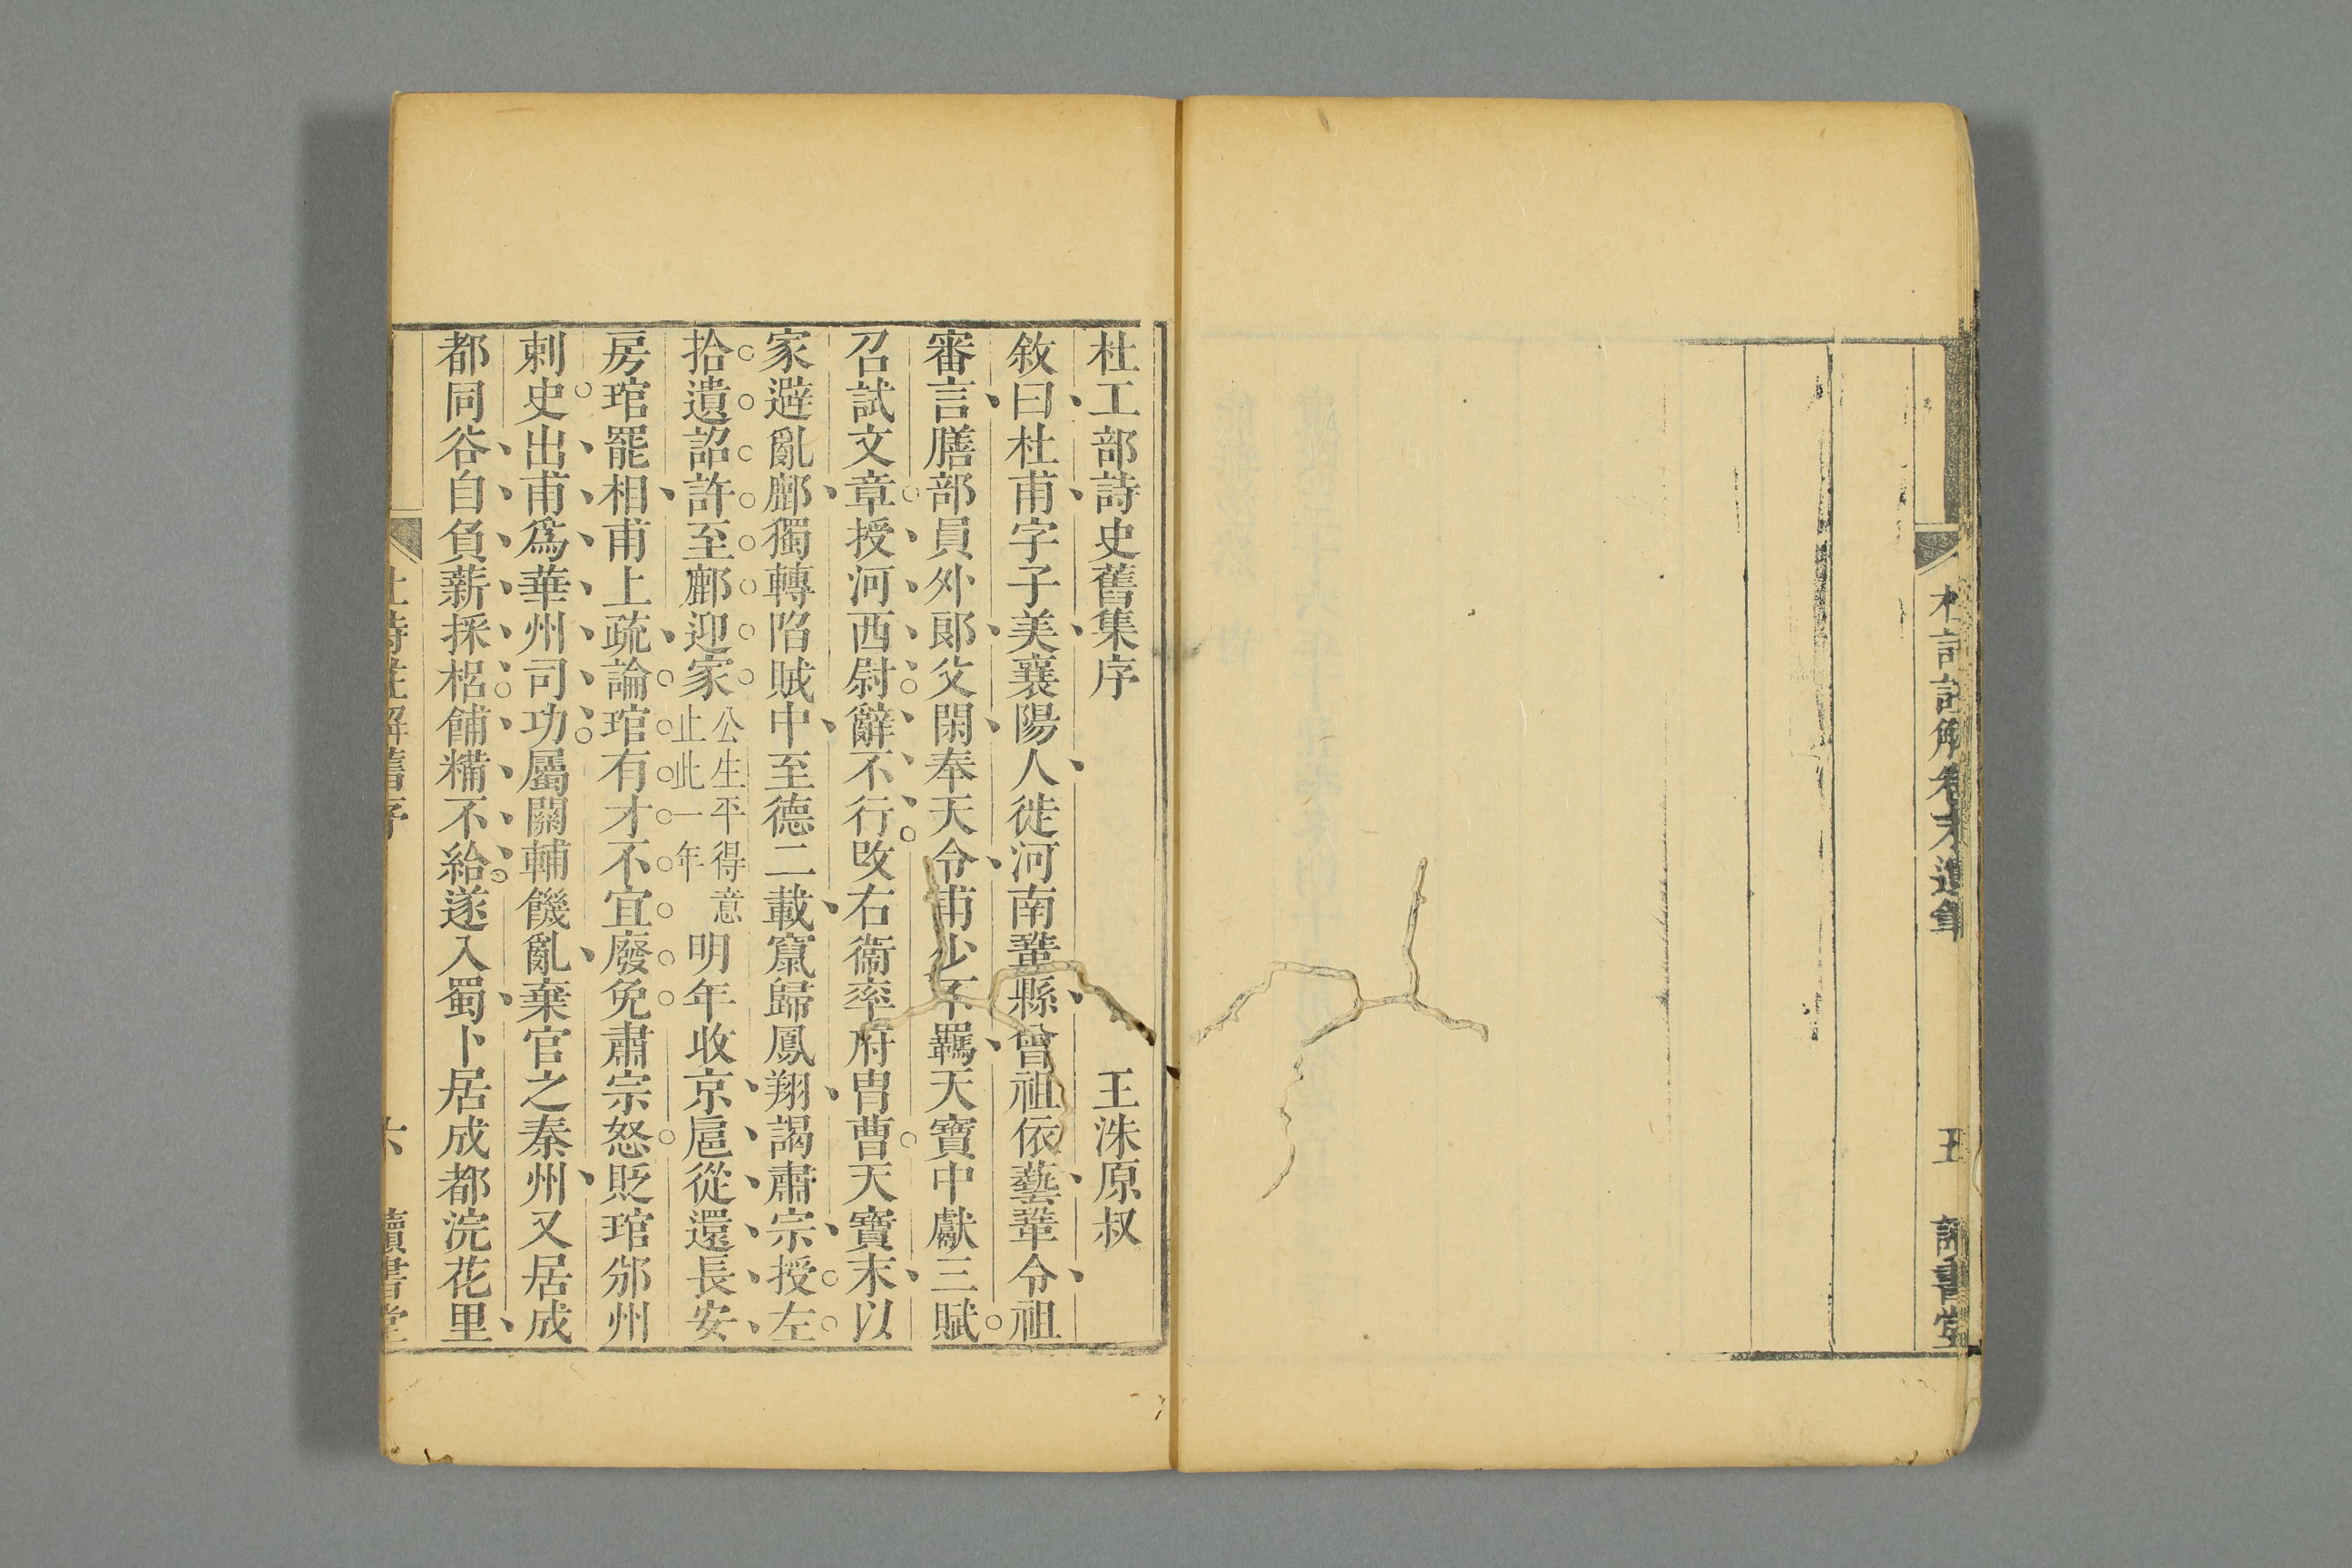 杜工部詩史舊集序　王洙原叔
敘曰杜甫字子美襄陽人徙河南鞏縣曾祖依藝鞏令祖
審言膳部員外郎父閑奉天令甫少不羈天寶中獻三賦
召試文章授河西尉辭不行改右衞率府胄曹天寶末以
家避亂鄜獨轉陷賊中至德二載竄歸鳳翔謁肅宗授左
拾遺詔許至鄜迎家公生平得意止此一年明年收京扈從還長安
房琯罷相甫上疏論琯有才不宜廢免肅宗怒貶琯邠州
刺史出甫爲華州司功屬關輔饑亂棄官之秦州又居成
都同谷自負薪採梠餔糒不給遂入蜀卜居成都浣花里
杜詩註解舊序　六　讀書堂
杜詩註解卷末　五　讀書堂